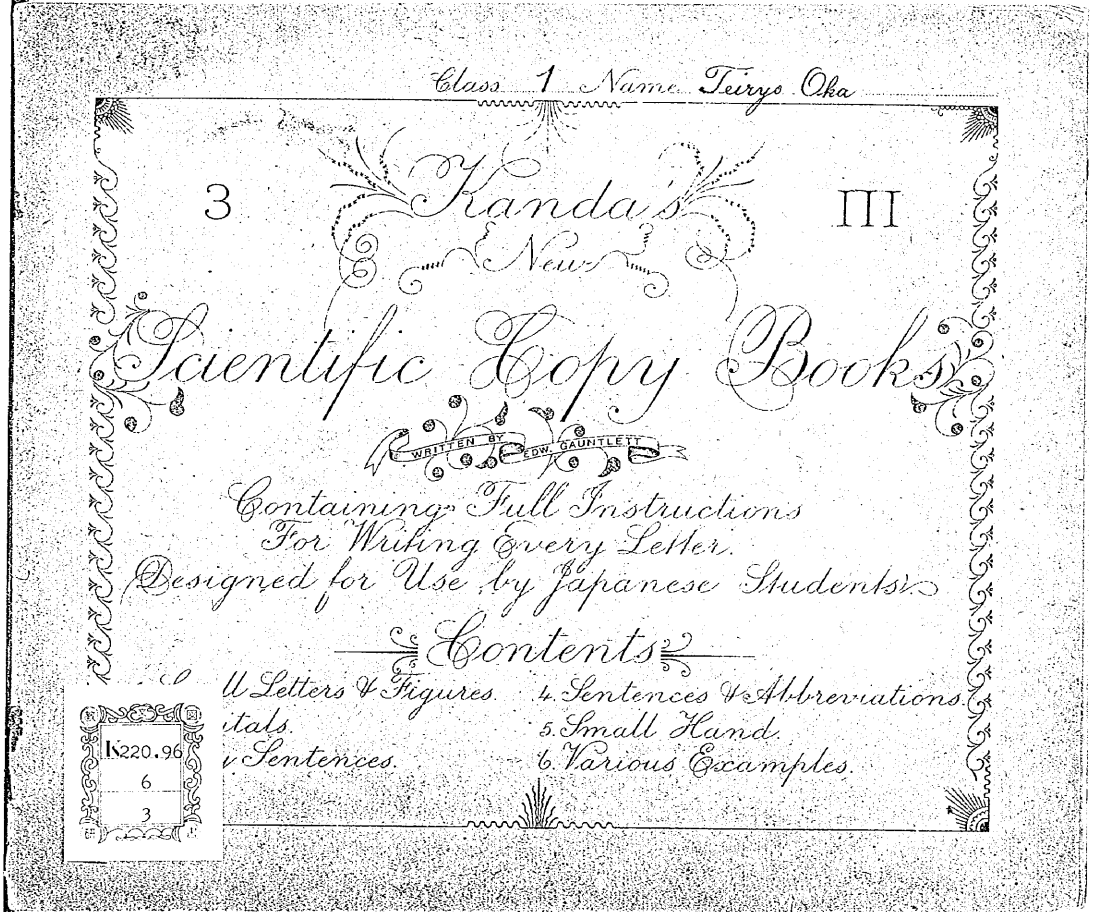 Class 1 Name Teiryo Oka
3 III
Kanda's
New
Scientific Copy Books
WRITTEN BY EDW. GAUNTLETT
Containing Full Instructions
For Writing Every Letter.
Designed for Use by Japanese Students.
Contents
ll Letters & Figures. 4. Sentences & Abbreviations.
itals. 5. Small Hand.
y Sentences. 6. Various Examples.
K220.96
6
3